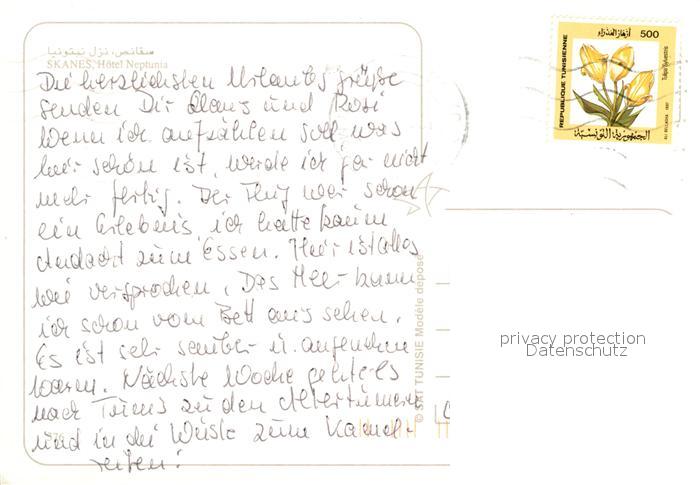 سقانص، نزل نبتونيا
SKANES, Hôtel Neptunia
Die herzlichsten Urlaubsgrüße
senden Dir Klaus und Rosi
Wenn ich aufzählen soll was
hier schön ist, werde ich gar nicht
mehr fertig. Der Flug war schon
ein Erlebnis, ich hatte kaum
Andacht zum Essen. Hier ist alles
wie versprochen. Das Meer kann
ich schon vom Bett aus sehen.
Es ist sehr sauber u. angenehm
waren. Nächste Woche geht es
nach Tunis zu den Altertümern
und in die Wüste zum Kamel-
reiten!
© SAT TUNISIE Modèle déposé
REPUBLIQUE TUNISIENNE
أزهار العذراء
500
Tulipa Sylvestris
الجمهورية التونسية
privacy protection
Datenschutz